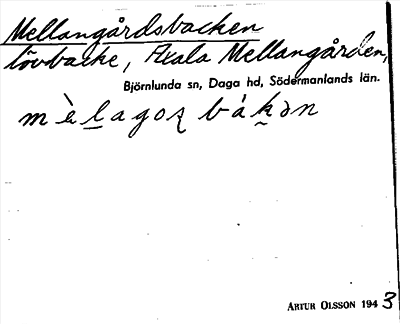 Mellangårdsbacken
lövbacke, Axala Mellangården,
Björnlunda sn, Daga hd, Södermanlands län.
mèlagoʐ bákən
ARTUR OLSSON 1943